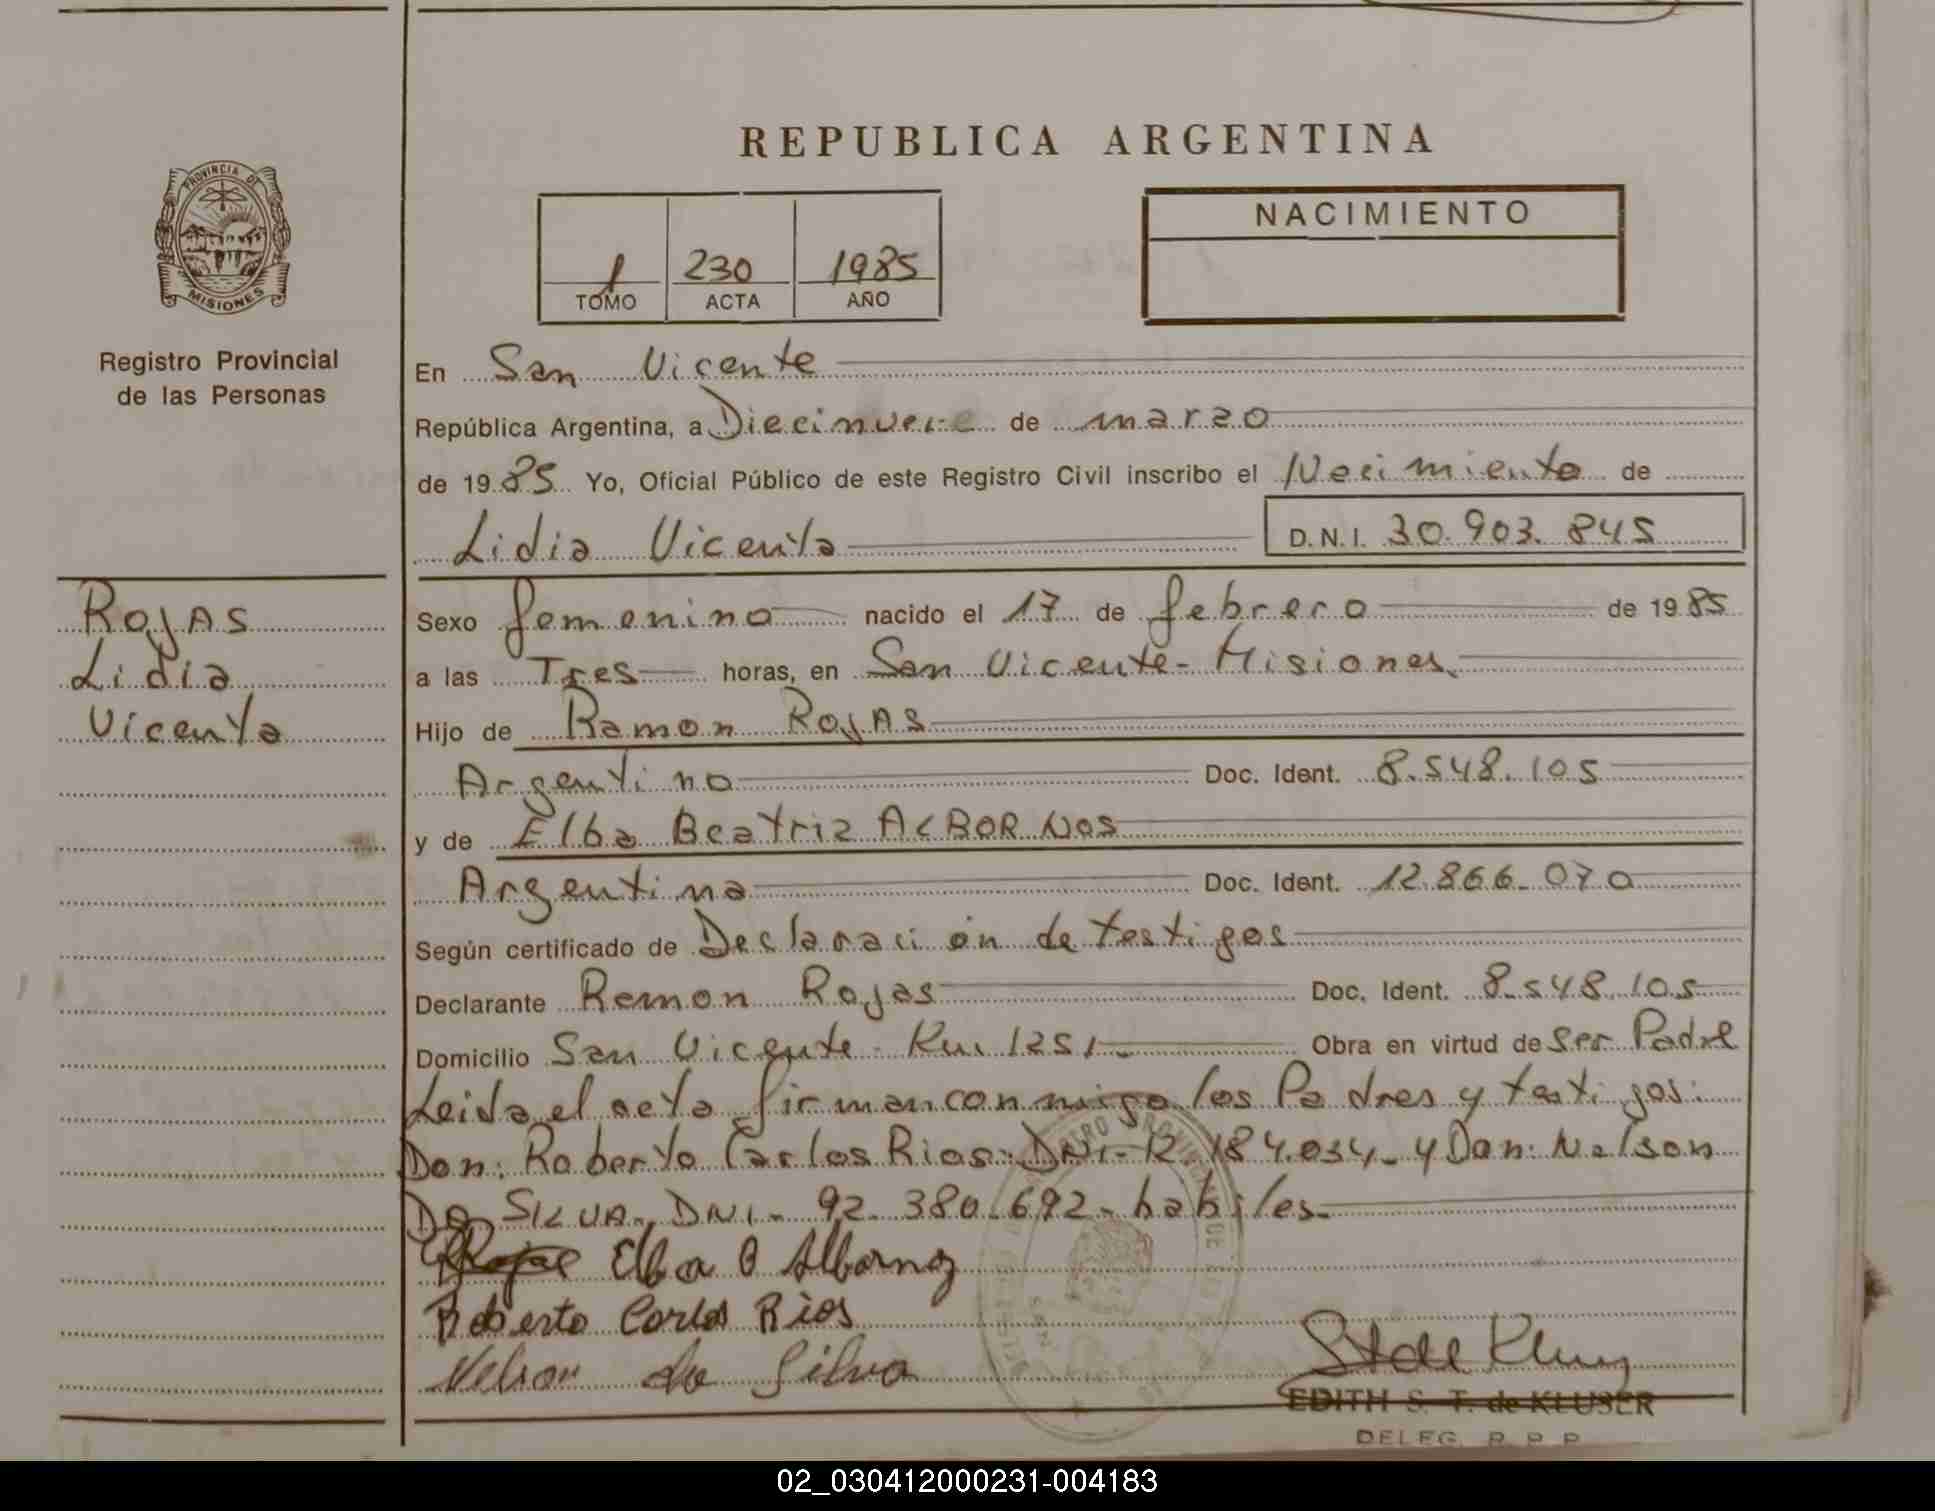 REPUBLICA ARGENTINA
PROVINCIA DE
MISIONES
Registro Provincial
de las Personas
1 230 1985
TOMO ACTA AÑO
NACIMIENTO
En San Vicente
República Argentina, a Diecinueve de marzo
de 1985 Yo, Oficial Público de este Registro Civil inscribo el Nacimiento de
Lidia Vicenta D.N.I. 30.903.845
ROJAS
Lidia
Vicenta
Sexo femenino nacido el 17 de febrero de 1985
a las Tres horas, en San Vicente - Misiones
Hijo de Ramon ROJAS
Argentino Doc. Ident. 8.548.105
y de Elba Beatriz ALBORNOS
Argentina Doc. Ident. 12.866.070
Según certificado de Declaración de testigos
Declarante Ramon Rojas Doc. Ident. 8.548.105
Domicilio San Vicente - Km 1251 - Obra en virtud de ser Padre
Leida el acta firman conmigo los Padres y testigos:
Don: Roberto Carlos Rios: DNI - 12.184.034 - y Don: Nelson
Da SILVA - DNI - 92.380.692 - habiles -
Rojas Elba B Albornoz
Roberto Carlos Rios
Nelson da Silva
EDITH S. T. de KLUSER
DELEG. R. P. P.
02_030412000231-004183